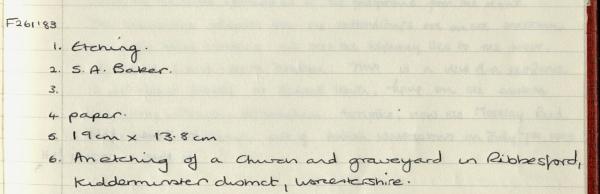 F261'83
1. Etching.
2. S. A. Baker.
3.
4. paper.
5. 19cm x 13.8cm
6. An etching of a Church and graveyard in Ribbesford,
Kidderminster district, Worcestershire.